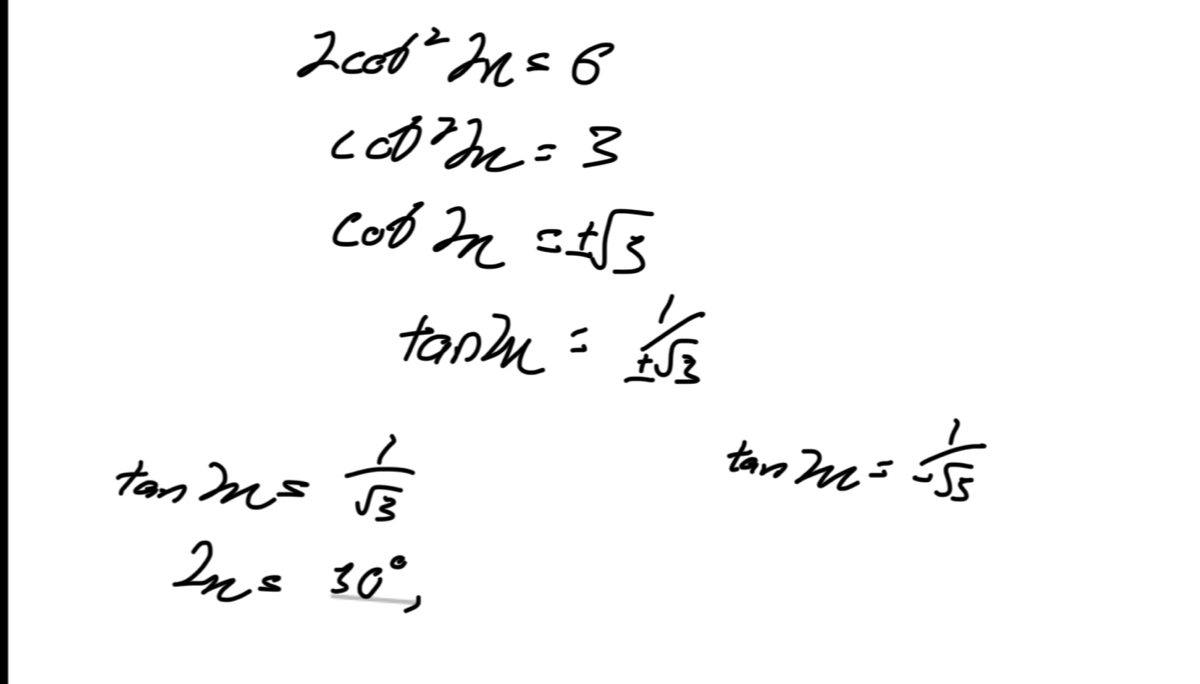 2cot² 2x = 6
cot² 2x = 3
cot 2x = ±√3
tan 2x = 1/±√3
tan 2x = 1/√3
tan 2x = 1/-√5
2x = 30°,